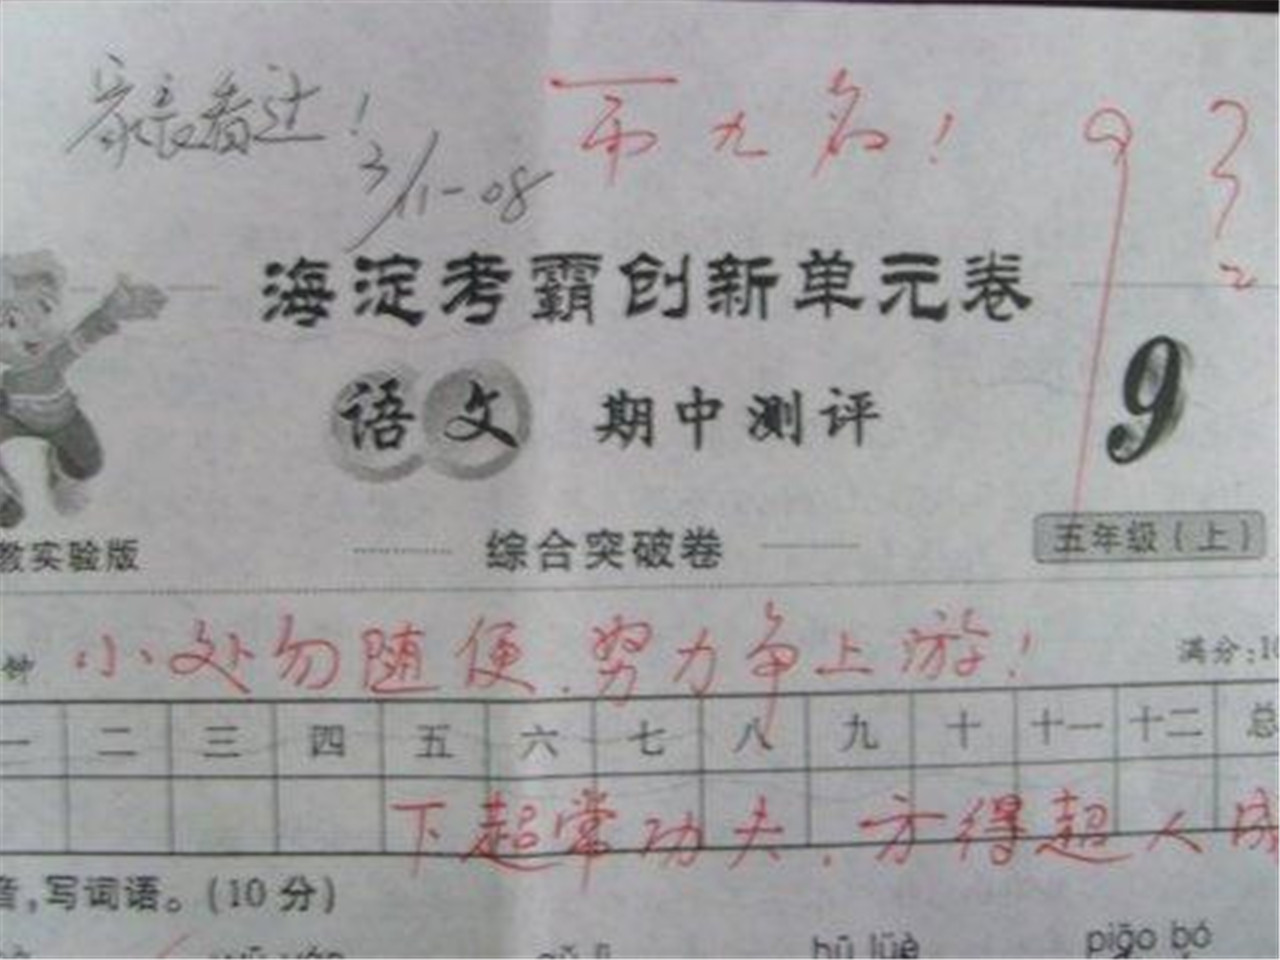 家长看过！
3/11-08
第九名！
93
2
海淀考霸创新单元卷
语文 期中测评
9
教实验版
综合突破卷
五年级（上）
钟 小处勿随便，努力争上游！ 满分：10
一 二 三 四 五 六 七 八 九 十 十一 十二 总
下超常功夫，方得超人成
音，写词语。（10分）
hū lüè
piāo bó